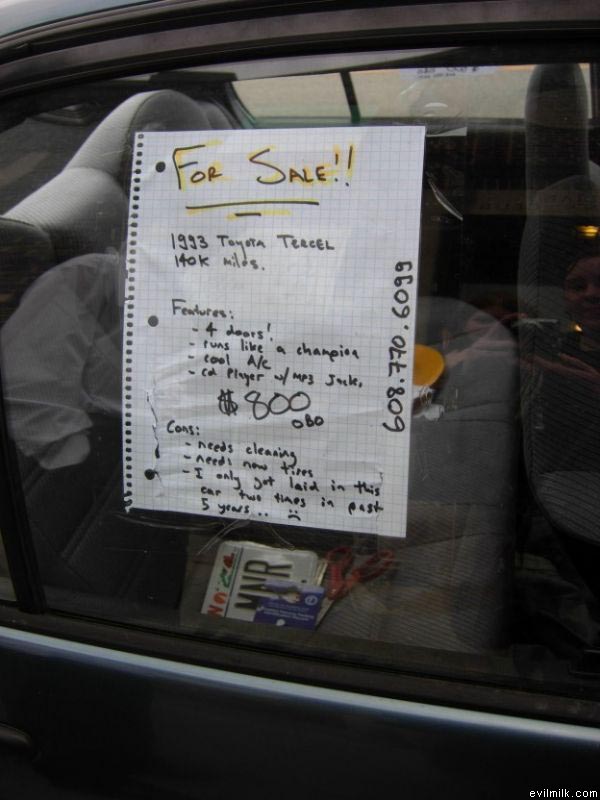 FOR SALE!!
1993 TOYOTA TERCEL
140K miles.
Features:
- 4 doors!
- runs like a champion
- cool A/C
- cd Player w/ MP3 Jack.
$800
OBO
Cons:
- needs cleaning
- needs new tires
- I only got laid in this
car two times in past
5 years.. :(
609.770.0699
MNR
evilmilk.com